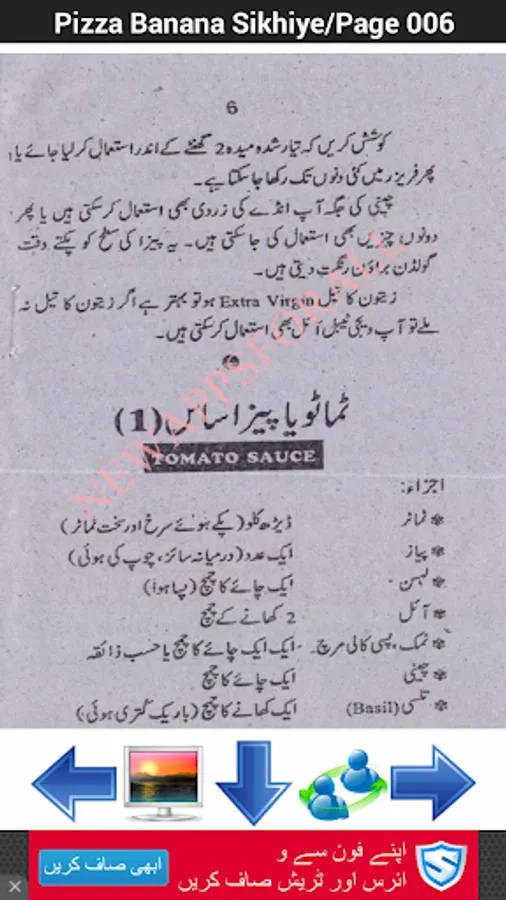 Pizza Banana Sikhiye/Page 006
6
کوشش کریں کہ تیار شدہ میدہ 2 گھنٹے کے اندر استعمال کر لیا جائے یا
پھر فریزر میں کئی دنوں تک رکھا جا سکتا ہے۔
چینی کی جگہ آپ انڈے کی زردی بھی استعمال کر سکتی ہیں یا پھر
دونوں چیزیں بھی استعمال کی جا سکتی ہیں۔ یہ پیزا کی سطح کو پکتے وقت
گولڈن براؤن رنگت دیتی ہیں۔
زیتون کا تیل Extra Virgin ہو تو بہتر ہے اگر زیتون کا تیل نہ
ملے تو آپ ویجی ٹیبل آئل بھی استعمال کر سکتی ہیں۔
ٹماٹو یا پیزا ساس (1)
TOMATO SAUCE
NEWAPPSFORALL
اجزاء:
ٹماٹر ڈیڑھ کلو (پکے ہوئے سرخ اور سخت ٹماٹر)
پیاز ایک عدد (درمیانہ سائز، چوپ کی ہوئی)
لہسن ایک چائے کا چمچ (پسا ہوا)
آئل 2 کھانے کے چمچ
نمک، پسی کالی مرچ۔ ایک ایک چائے کا چمچ یا حسب ذائقہ
چینی ایک چائے کا چمچ
تلسی (Basil) ایک کھانے کا چمچ (باریک کتری ہوئی)
اپنے فون سے و
ائرس اور ٹریش صاف کریں
ابھی صاف کریں